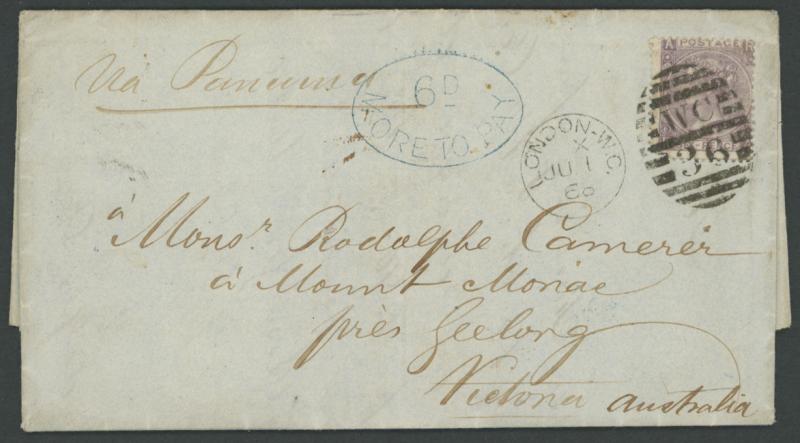 A POSTAGE R
Via Panama
6D
MORE TO PAY
WC
36
LONDON-W.C.
X
JU 1
à Monsr. Rodolphe Camerer
à Mount Moriac
près Geelong
Victoria Australia